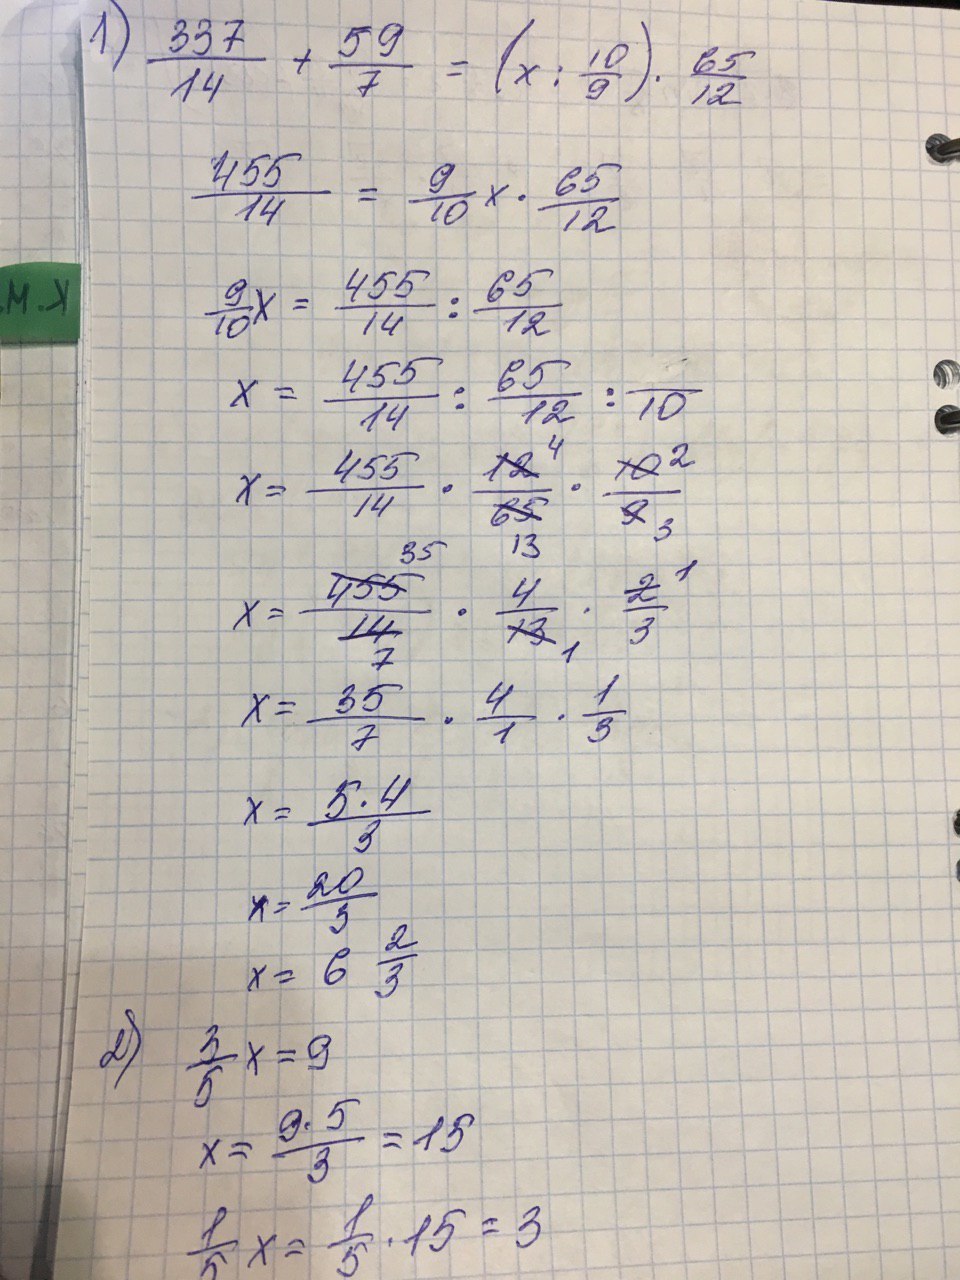 1) 337/14 + 59/7 = (x : 10/9) · 65/12
455/14 = 9/10 x · 65/12
9/10 x = 455/14 : 65/12
x = 455/14 : 65/12 : /10
x = 455/14 · 12/65 · 10/9 4 2 13 3
x = 455/14 · 4/13 · 2/3 35 7 1 1
x = 35/7 · 4/1 · 1/3
x = 5·4/3
x = 20/3
x = 6 2/3
2) 3/5 x = 9
x = 9·5/3 = 15
1/5 x = 1/5 · 15 = 3